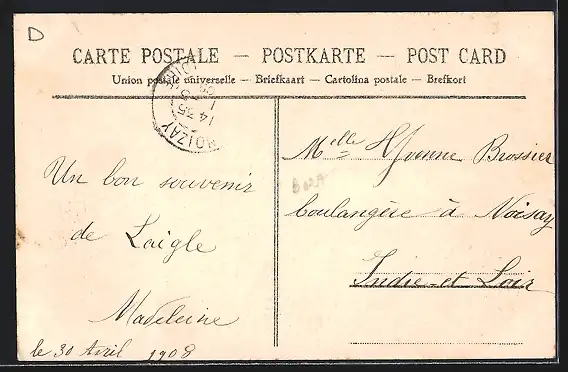 D
CARTE POSTALE — POSTKARTE — POST CARD
Union postale universelle – Briefkaart – Cartolina postale – Brefkort
14 35
Melle Yvonne Brossier
Un bon souvenir
boulangère à Noisay
de Laigle
Indre-et-Loir
Madeleine
le 30 Avril 1908